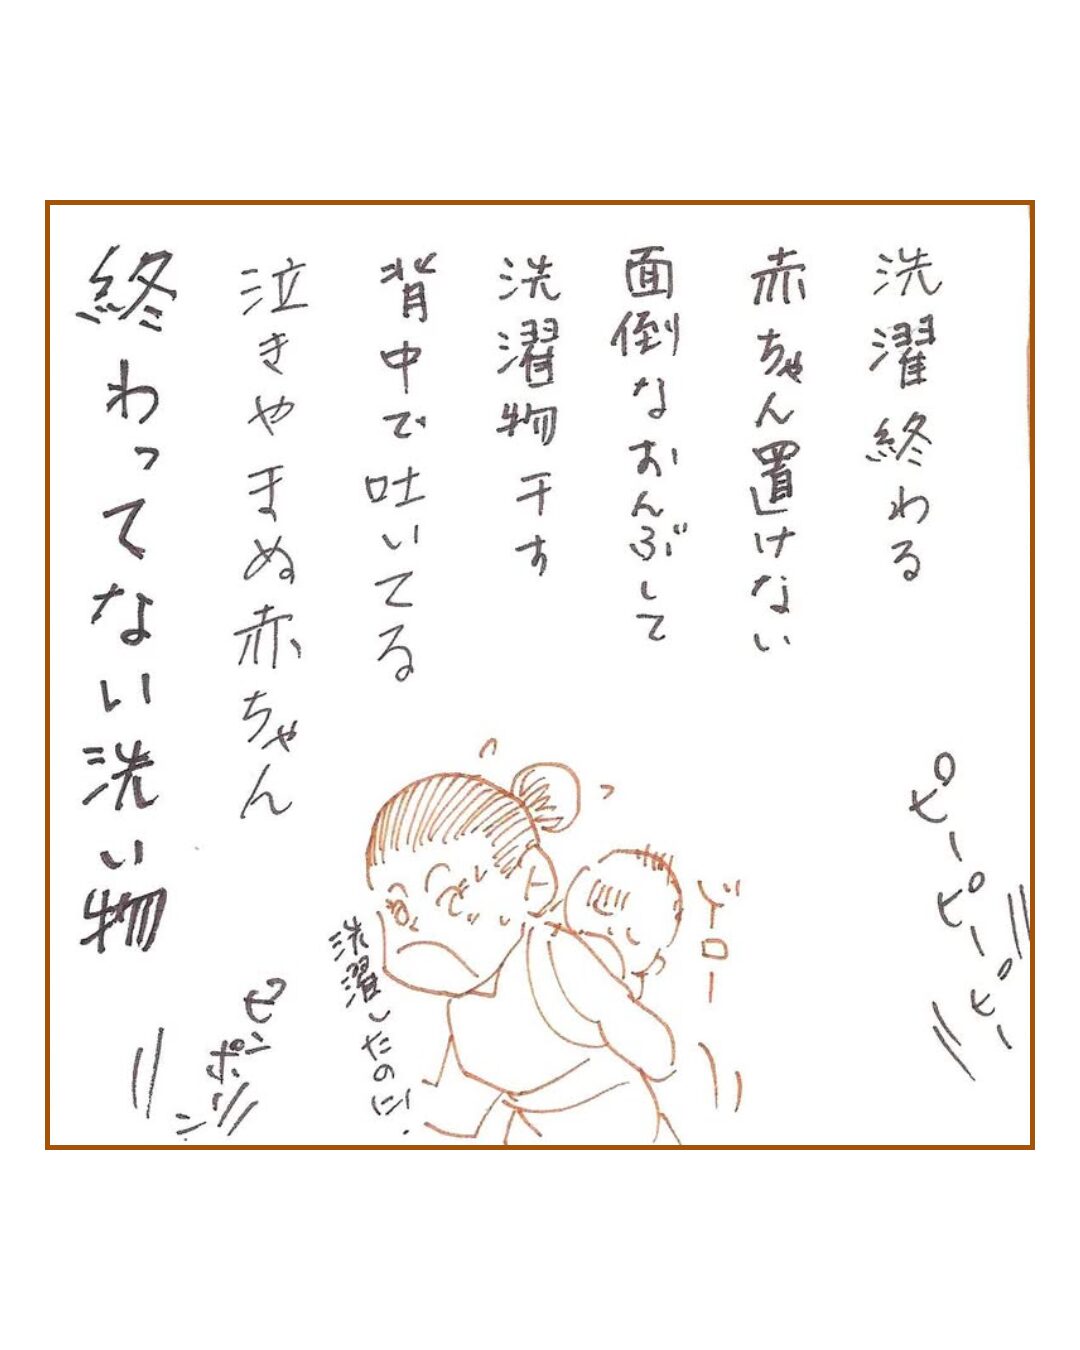 洗濯終わる
赤ちゃん置けない
面倒なおんぶして
洗濯物干す
背中で吐いてる
泣きやまぬ赤ちゃん
終わってない洗い物
ピーピーピー
ドロー
洗濯したのに!
ピンポーン